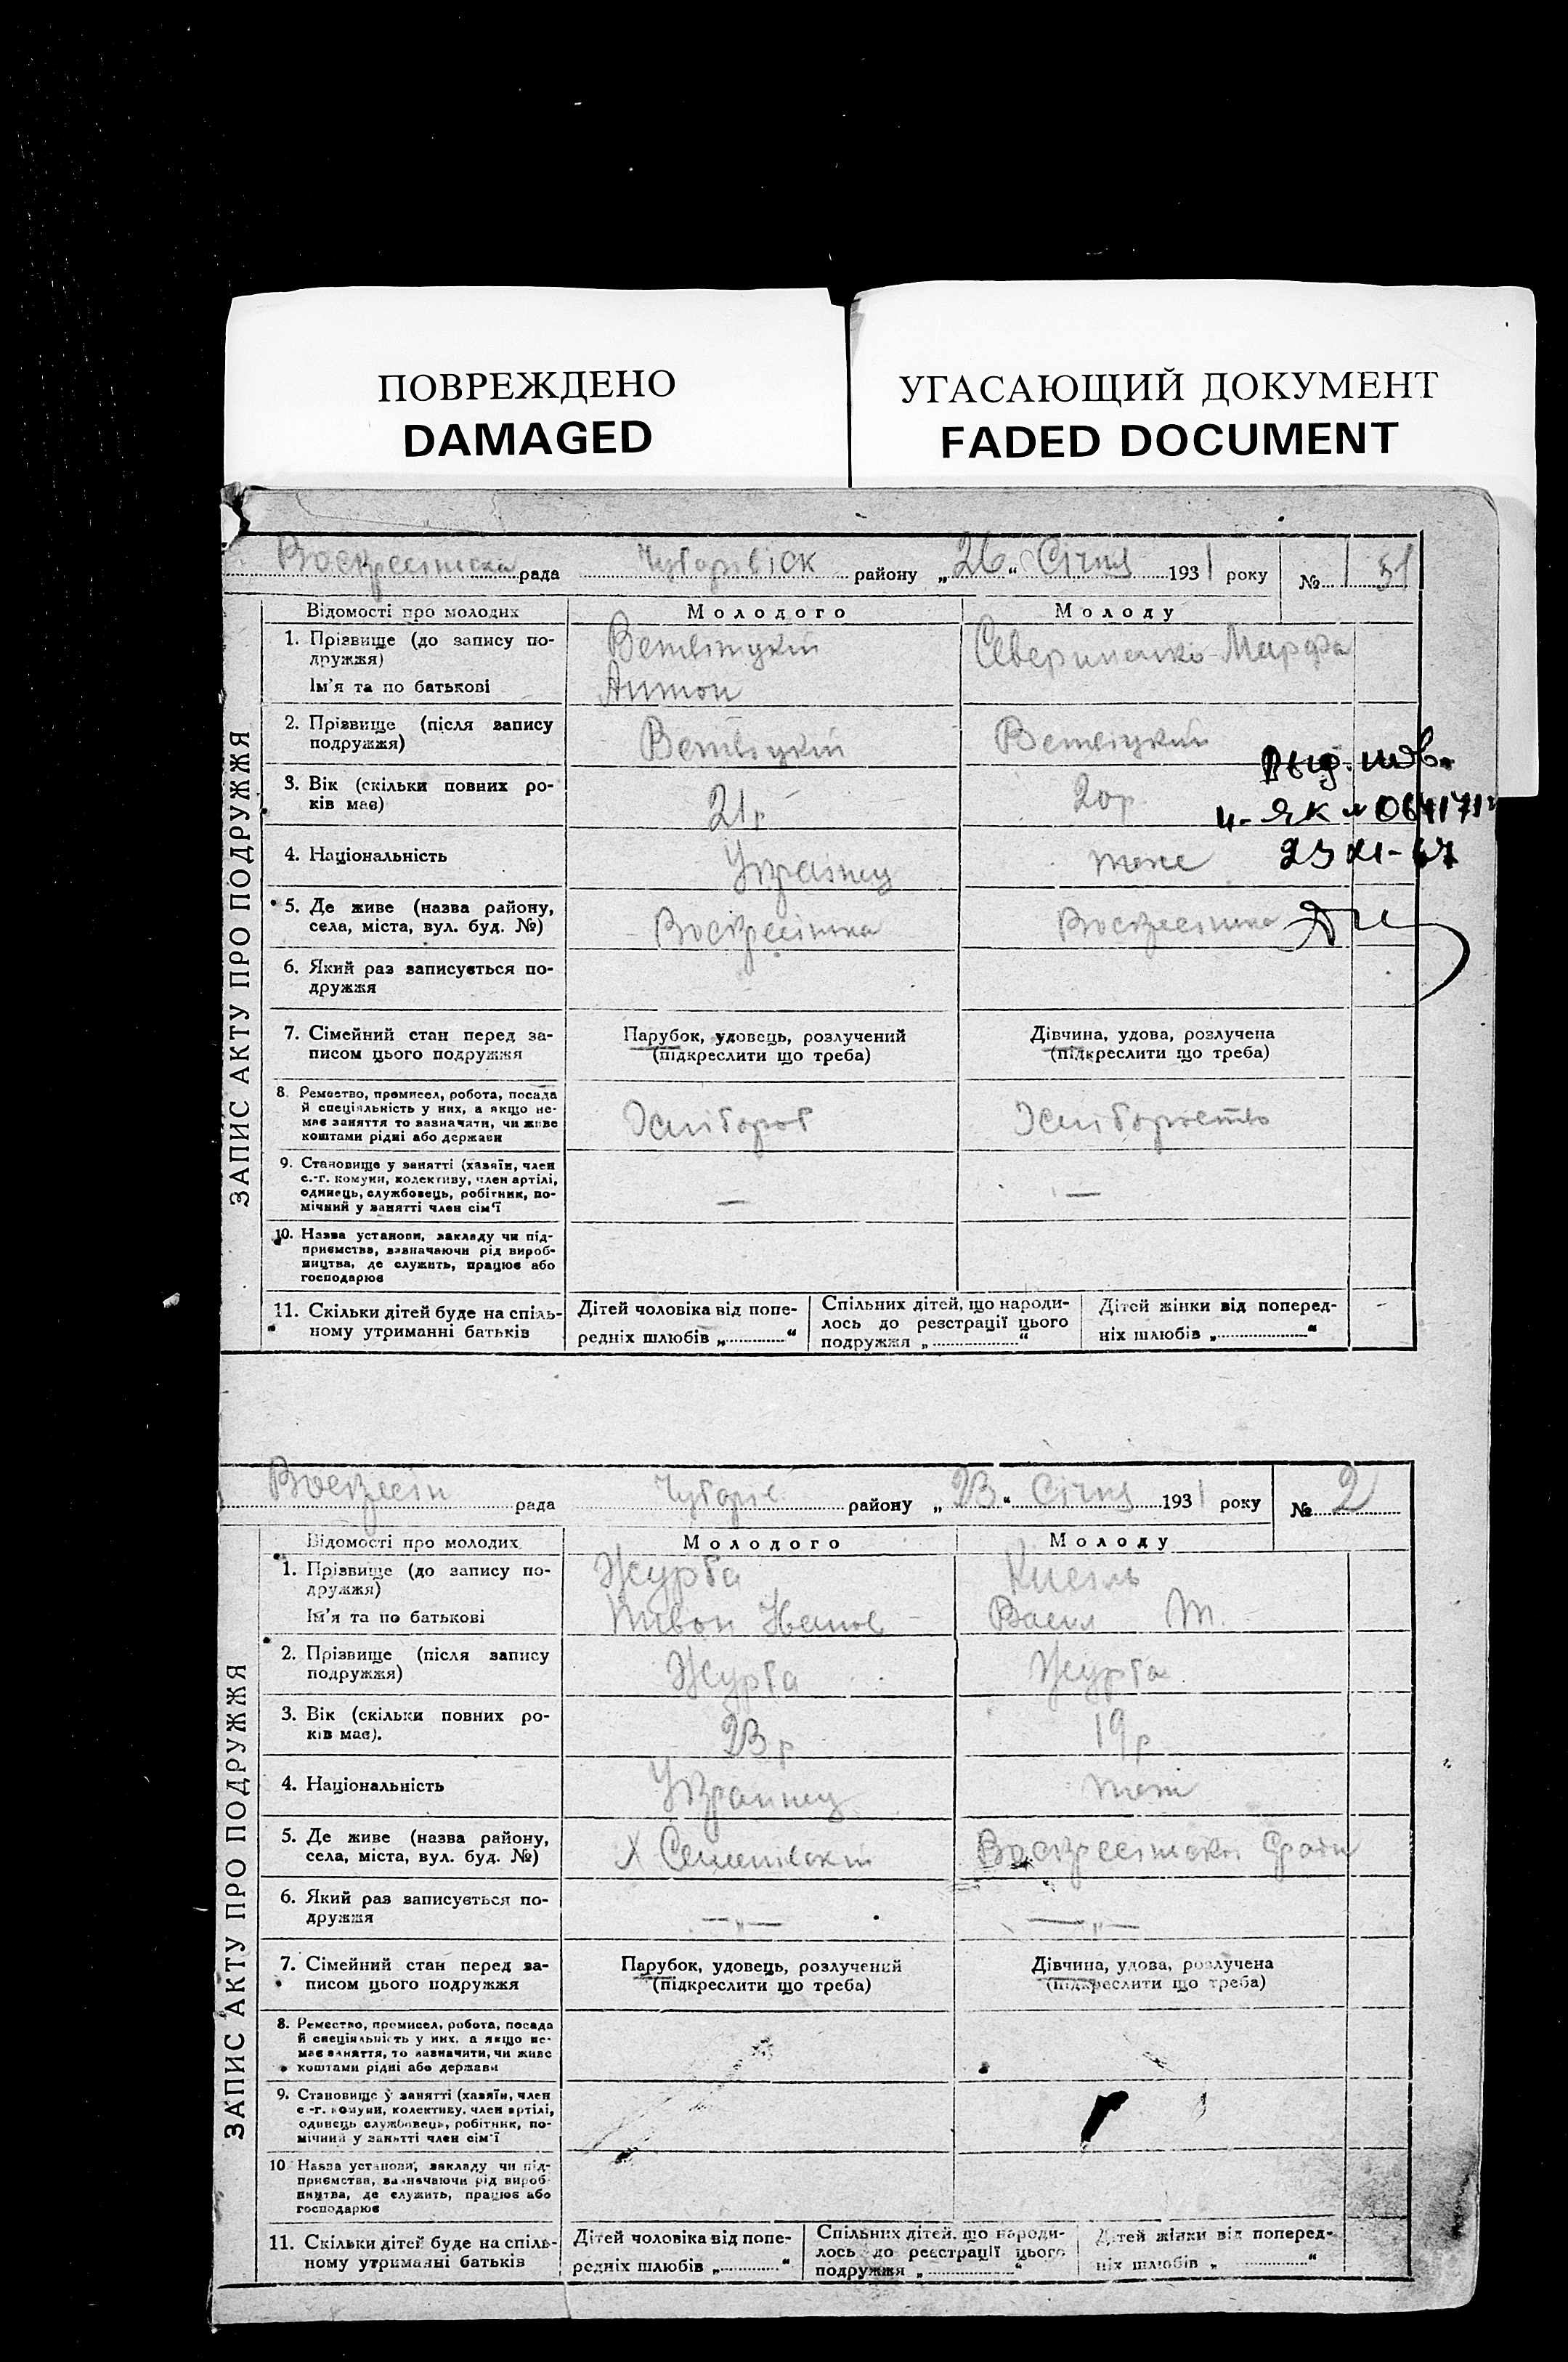 ПОВРЕЖДЕНО
DAMAGED
УГАСАЮЩИЙ ДОКУМЕНТ
FADED DOCUMENT
ЗАПИС АКТУ ПРО ПОДРУЖЖЯ
рада району „26“ Січня 1931 року №
Відомості про молодих Молодого Молоду
1. Прізвище (до запису по-
дружжя)
Ім'я та по батькові
Ветвіцкій
Антон
Севериненко Марфа
2. Прізвище (після запису
подружжя)
Ветвіцкій Ветвіцкій
3. Вік (скільки повних ро-
ків має)
21р 20р
4. Національність
Українец тоже
5. Де живе (назва району,
села, міста, вул. буд. №)
Воскресінка Воскресінка
6. Який раз записується по-
дружжя
7. Сімейний стан перед за-
писом цього подружжя
Парубок, удовець, розлучений
(підкреслити що треба)
Дівчина, удова, розлучена
(підкреслити що треба)
8. Ремество, промисел, робота, посада
й спеціяльність у них, а якщо не-
має заняття то зазначати, чи живе
коштами рідні або держави
Хлібороб
9. Становище у занятті (хазяїн, член
с.-г. комуни, колективу, член артілі,
одинець, службовець, робітник, по-
мічний у занятті член сім'ї
— —
10. Назва установи, закладу чи під-
приємства, зазначаючи рід вироб-
ництва, де служить, працює або
господарює
11. Скільки дітей буде на спіль-
ному утриманні батьків
Дітей чоловіка від попе-
редніх шлюбів „..............“
Спільних дітей, що народи-
лось до реєстрації цього
подружжя „..............“
Дітей жінки від поперед-
ніх шлюбів „..............“
ЗАПИС АКТУ ПРО ПОДРУЖЖЯ
Воскресін рада району „23“ Січня 1931 року № 2
Відомості про молодих Молодого Молоду
1. Прізвище (до запису по-
дружжя)
Ім'я та по батькові
Журба
2. Прізвище (після запису
подружжя)
Журба Журба
3. Вік (скільки повних ро-
ків має).
23р 19р
4. Національність
Украинец
5. Де живе (назва району,
села, міста, вул. буд. №)
6. Який раз записується по-
дружжя
—„— —„—
7. Сімейний стан перед за-
писом цього подружжя
Парубок, удовець, розлучений
(підкреслити що треба)
Дівчина, удова, розлучена
(підкреслити що треба)
8. Ремество, промисел, робота, посада
й спеціяльність у них, а якщо не-
має заняття, то зазначити, чи живе
коштами рідні або держави
9. Становище у занятті (хазяїн, член
с-г. комуни, колективу, член артілі,
одинець службовець, робітник, по-
мічний у занятті член сім'ї
10 Назва установи, закладу чи під-
приємства, зазначаючи рід вироб-
ництва, де служить, працює або
господарює
11. Скільки дітей буде на спіль-
ному утриманні батьків
Дітей чоловіка від попе-
редніх шлюбів „..............“
Спільних дітей, що народи-
лось до реєстрації цього
подружжя „..............“
Дітей жінки від поперед-
ніх шлюбів „..............“